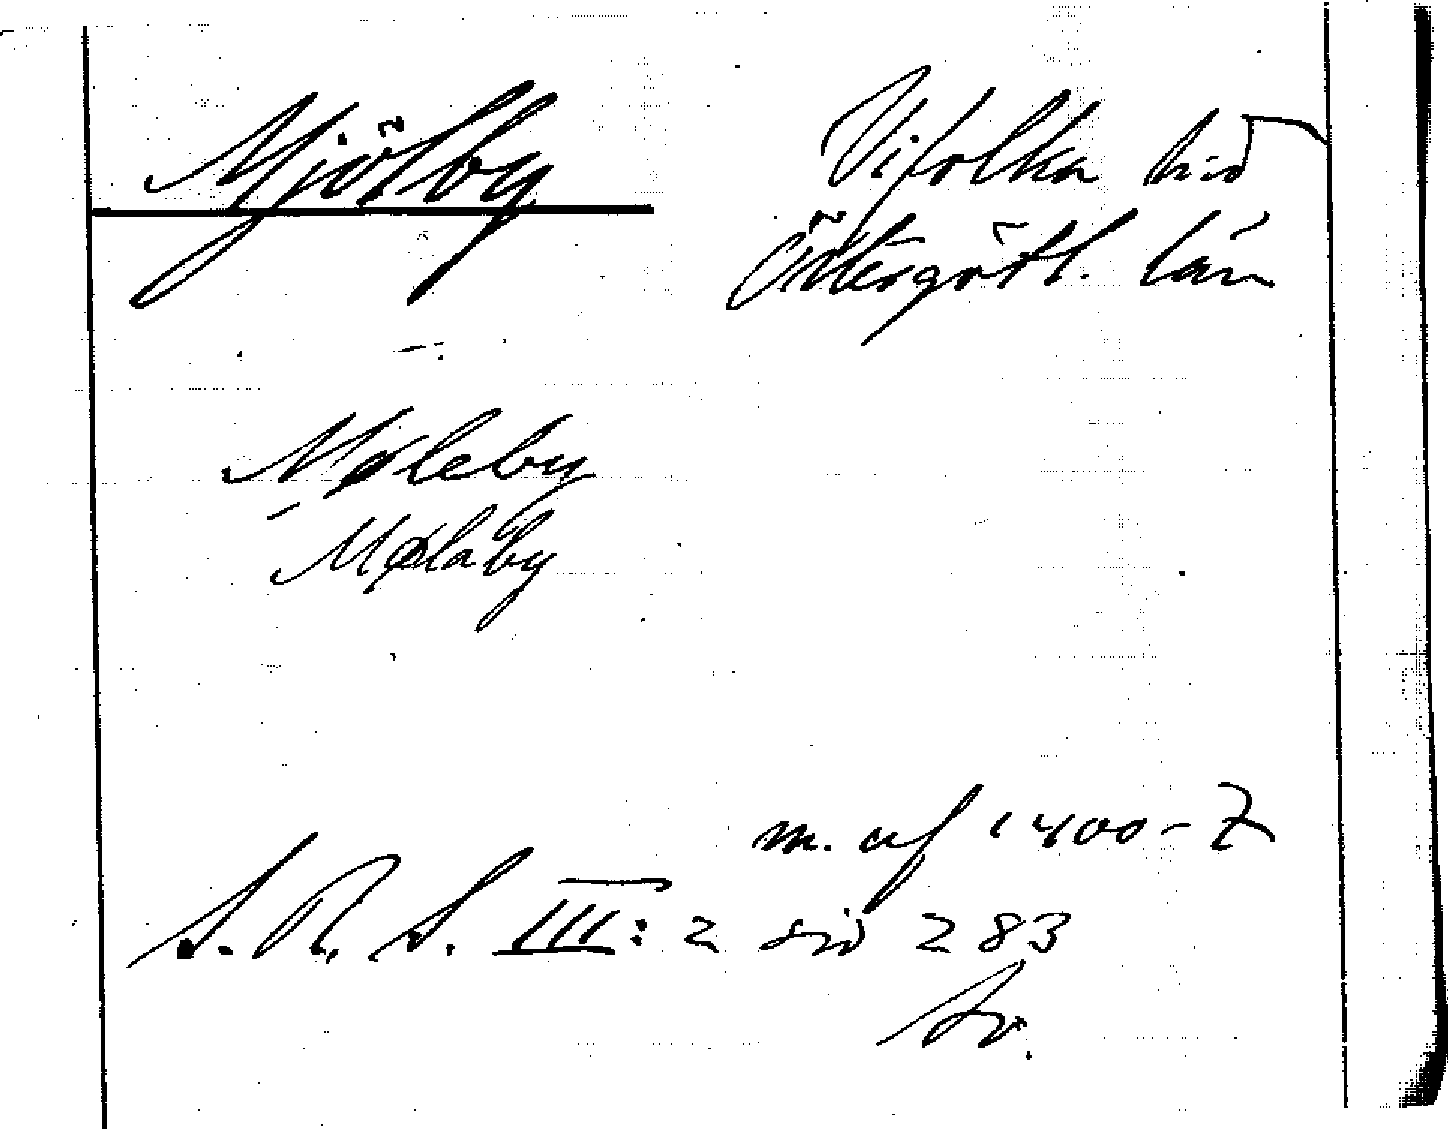 Mjölby
Vifolka hd
Östergötl. län
Møleby
Mølaby
m. af 1400-t
S. R. S. III: 2 sid 283